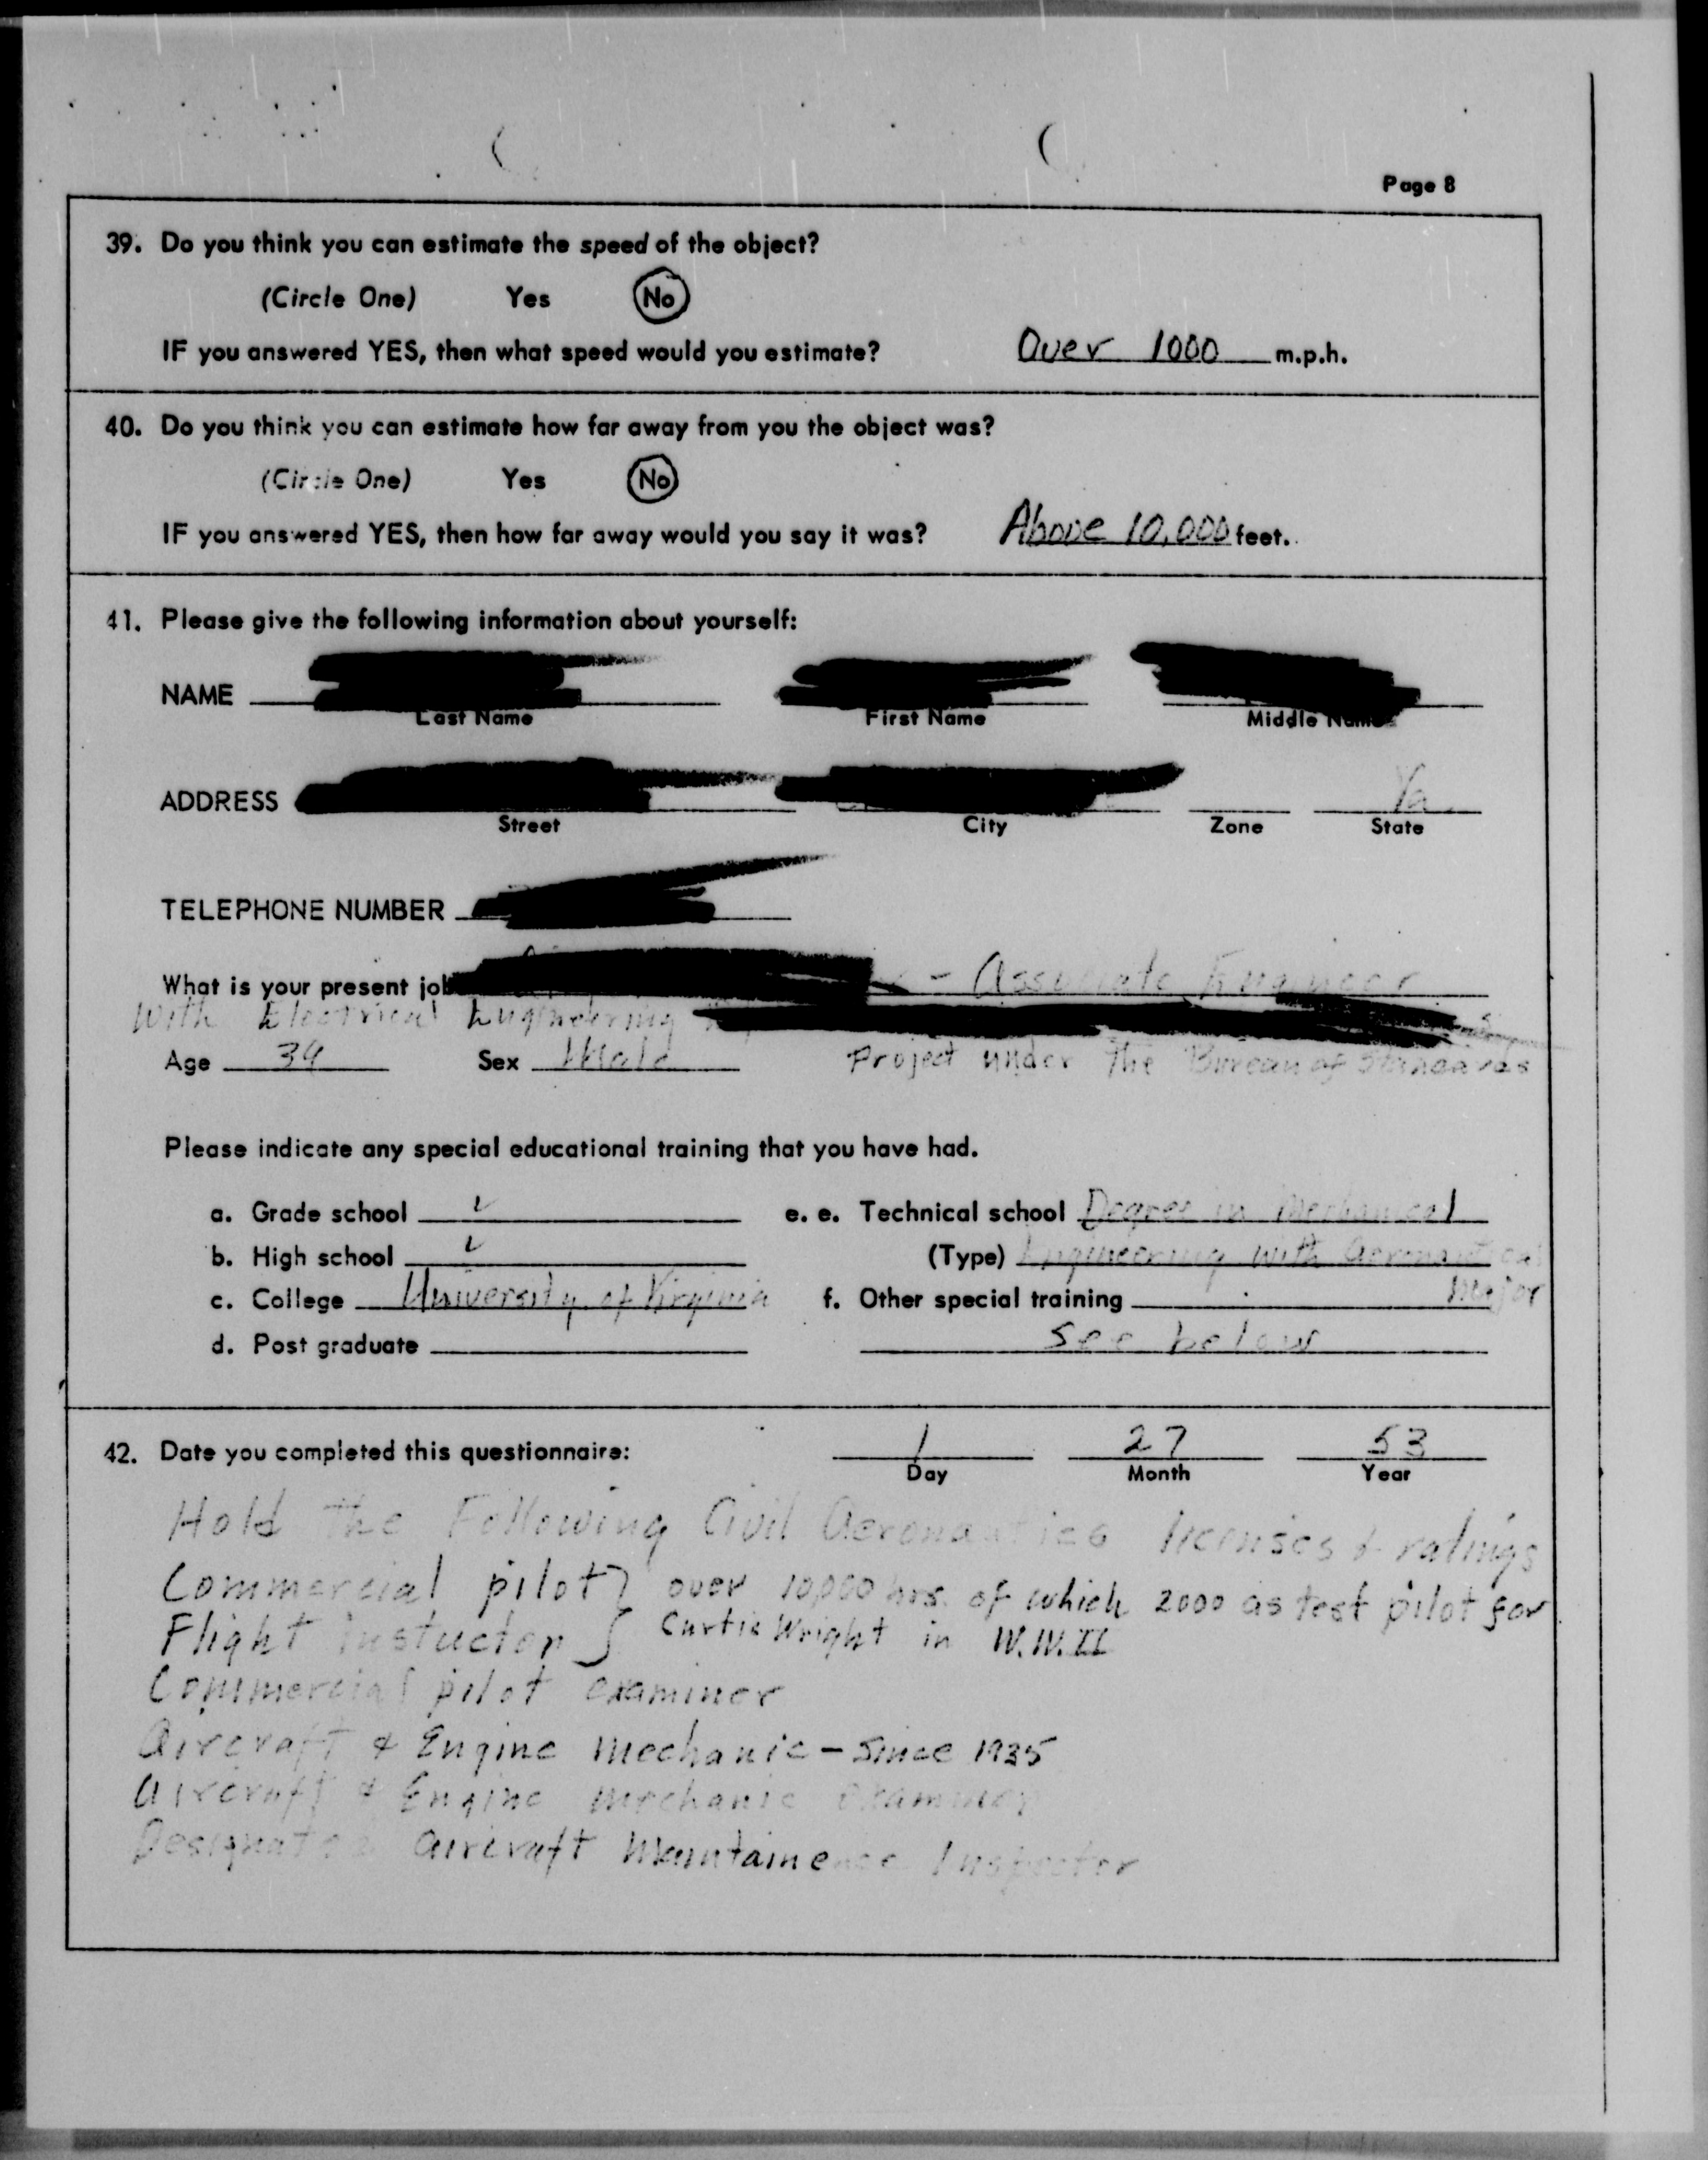 Page 8
39. Do you think you can estimate the speed of the object?
(Circle One) Yes No
IF you answered YES, then what speed would you estimate? Over 1000 m.p.h.
40. Do you think you can estimate how far away from you the object was?
(Circle One) Yes No
IF you answered YES, then how far away would you say it was? Above 10,000 feet.
41. Please give the following information about yourself:
NAME
Last Name First Name Middle Name
ADDRESS Va.
Street City Zone State
TELEPHONE NUMBER
What is your present job - Associate Engineer
With Electrical Engineering
Age 34 Sex Male Project under the Bureau of Standards
Please indicate any special educational training that you have had.
a. Grade school ✓ e. e. Technical school Degree in Mechanical
b. High school ✓ (Type) Engineering with aeronautical
c. College University of Virginia f. Other special training major
d. Post graduate see below
42. Date you completed this questionnaire: 1 27 53
Day Month Year
Hold the Following Civil Aeronautics licenses & ratings
Commercial pilot } over 10,000 hrs. of which 2000 as test pilot for
Flight instuctor } Curtis Wright in W.W.II
Commercial pilot examiner
Aircraft & Engine Mechanic - Since 1935
Aircraft & Engine mechanic examiner
Designated aircraft Maintainence Inspector